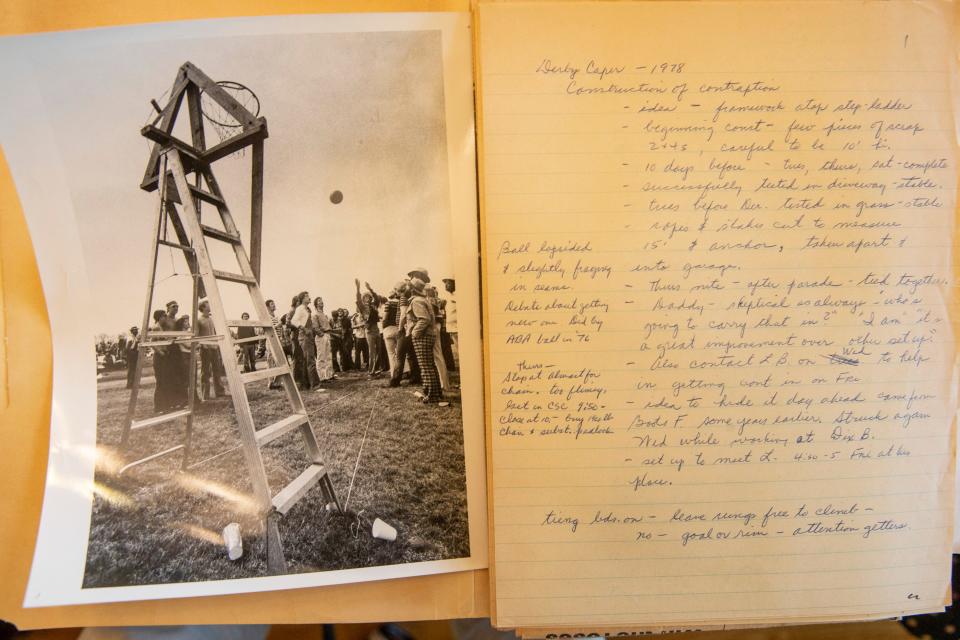 1
Derby Caper - 1978
Construction of contraption
- idea - framework atop step-ladder
- beginning const - few pieces of scrap
2x4s, careful to be 10' hi.
- 10 days before - tues, thurs, sat - complete
- successfully tested in driveway - stable.
- tues before Der. tested in grass - stable
- ropes & stakes cut to measure
15' & anchor, taken apart &
into garage.
- Thurs nite - after parade - tied together.
- Daddy - skeptical as always - "who's
going to carry that in?" "I am" "it's
a great improvement over other set up."
- Also contact L B on Wed to help
in getting cont in on Fri
- idea to hide it day ahead came from
F. some years earlier. Struck again
Wed while working at Dix B.
- set up to meet L. 4:30-5 Fri at his
place.
tieing bds. on - leave rungs free to climb -
no - goal or rim - attention getters.
Ball lopsided
& slightly fraying
in seams.
Debate about getting
new one Did by
ABA ball in '76
Thurs -
Stop at for
chain. too flimsy,
last in CSC 9:50 -
Close at 10 - buy
chain & subst. padlock